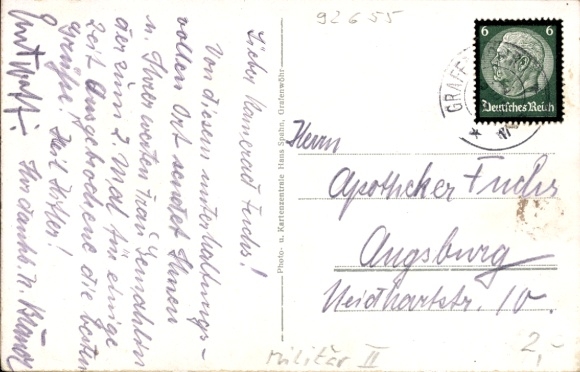 92655
Lieber Kamerad Fuchs!
Von diesem unterhaltungs-
vollen Ort sendet Ihnen
u. Ihrer werten Frau Gemahlin
der zum 2. Mal für einige
Zeit Ausgebochene die besten
Grüße! Heil Hitler!
Ihr dankb.
Photo- u. Kartenzentrale Hans Spahn, Grafenwöhr
6 6
Deutsches Reich
GRAFE
Herrn
Apotheker Fuchs
Augsburg
Neidhartstr. 10.
2,-
Militär II